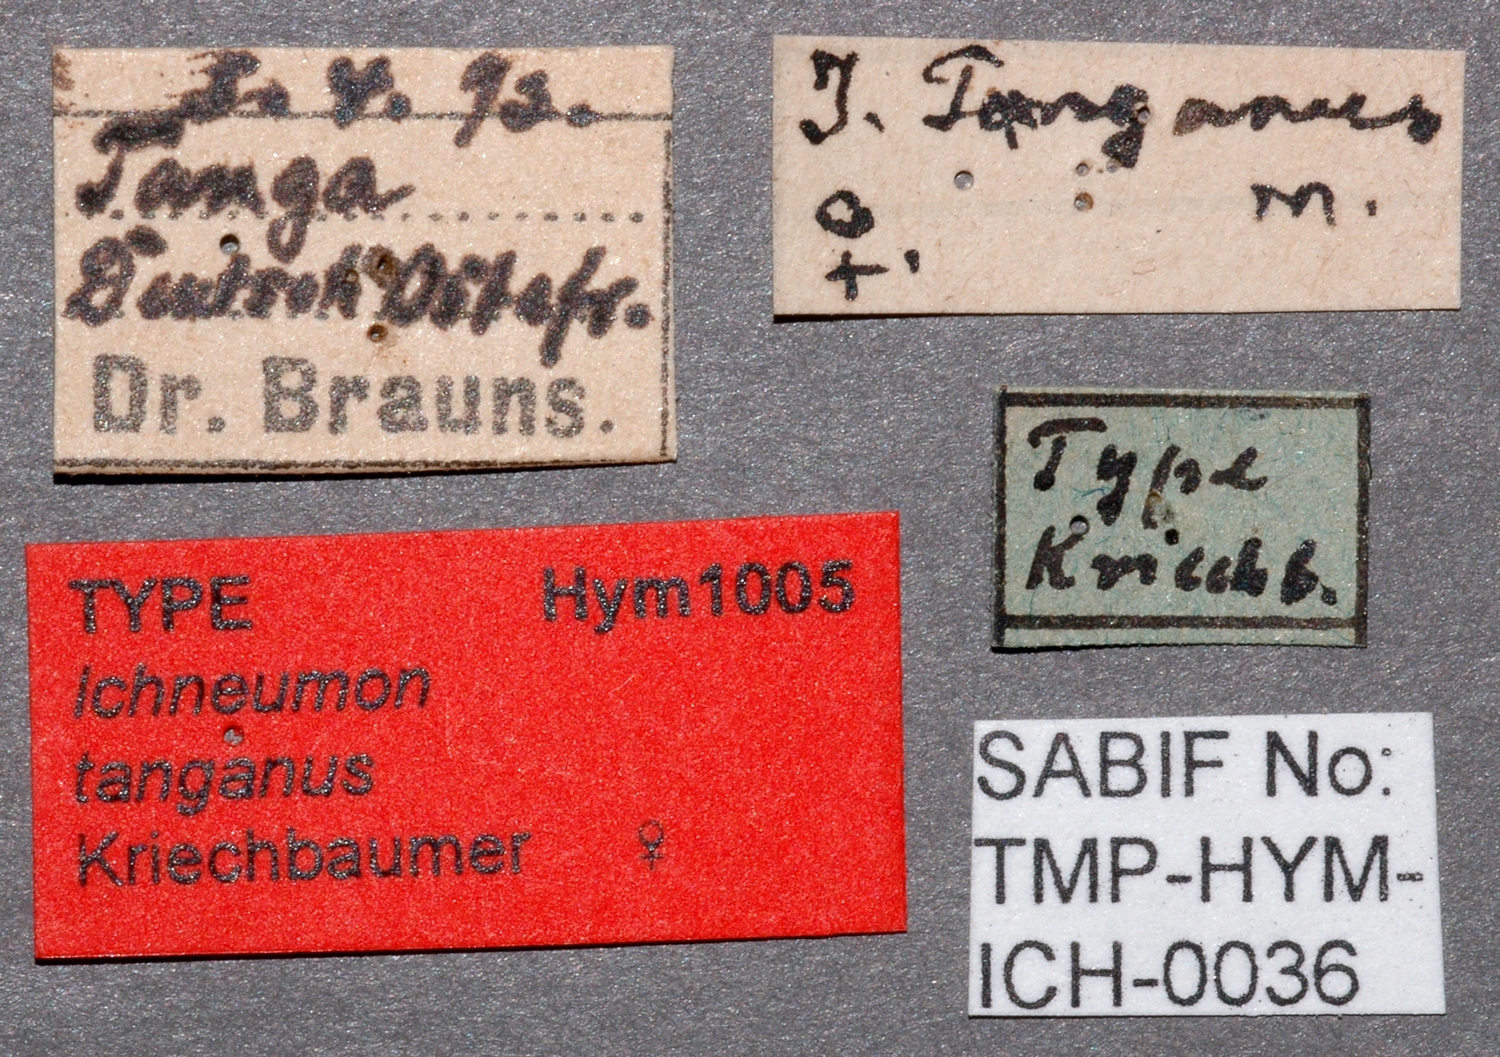 4. 92.
Tanga
Deutsch Ostafr.
Dr. Brauns.
J. Tanganus
♀. m.
Type
Kriechb.
TYPE Hym1005
Ichneumon
tanganus
Kriechbaumer ♀
SABIF No:
TMP-HYM-
ICH-0036